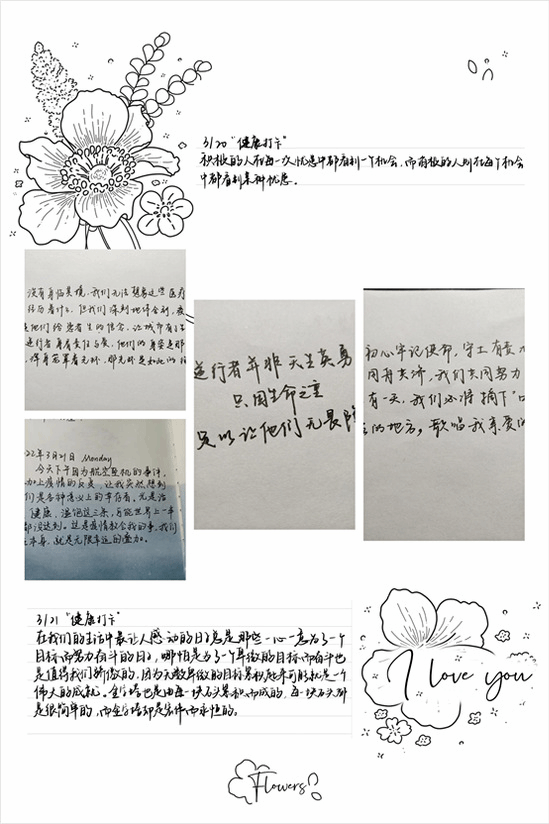 3/20 “健康打卡”
积极的人在每一次忧患中都看到一个机会，而消极的人则在每个机会
中都看到某种忧患。
没有身临其境，我们无法想象这些医疗
经历着什么，但我们深刻地体会到，
是他们给患者生的信念，让城市有了生
逆行者肩负责任与爱，他们的身姿是那
逆行者并非天生英勇
只因生命之重
足以让他们无畏
初心牢记使命，守土有责
同舟共济，我们共同努力
有一天，我们必将摘下“口
的地方，歌唱我亲爱的
22年3月21日 Monday
今天下午因为航空坠机的事件，
加上疫情的反复，让我突然想到
们是各种意义上的幸存者。无意语
健康、温饱这三条，可能世界上一半
都没达到。这是疫情教会我的事，我们
本身，就是无限幸运的叠加。
3/21 “健康打卡”
在我们的生活中最让人感动的日子总是那些一心一意为了一个
目标而努力奋斗的日子，哪怕是为了一个卑微的目标而奋斗也
是值得我们骄傲的，因为无数卑微的目标累积起来可能就是一个
伟大的成就。金字塔也是由每一块石头累积而成的，每一块石头都
是很简单的，而金字塔却是宏伟而永恒的。
I love you
Flowers